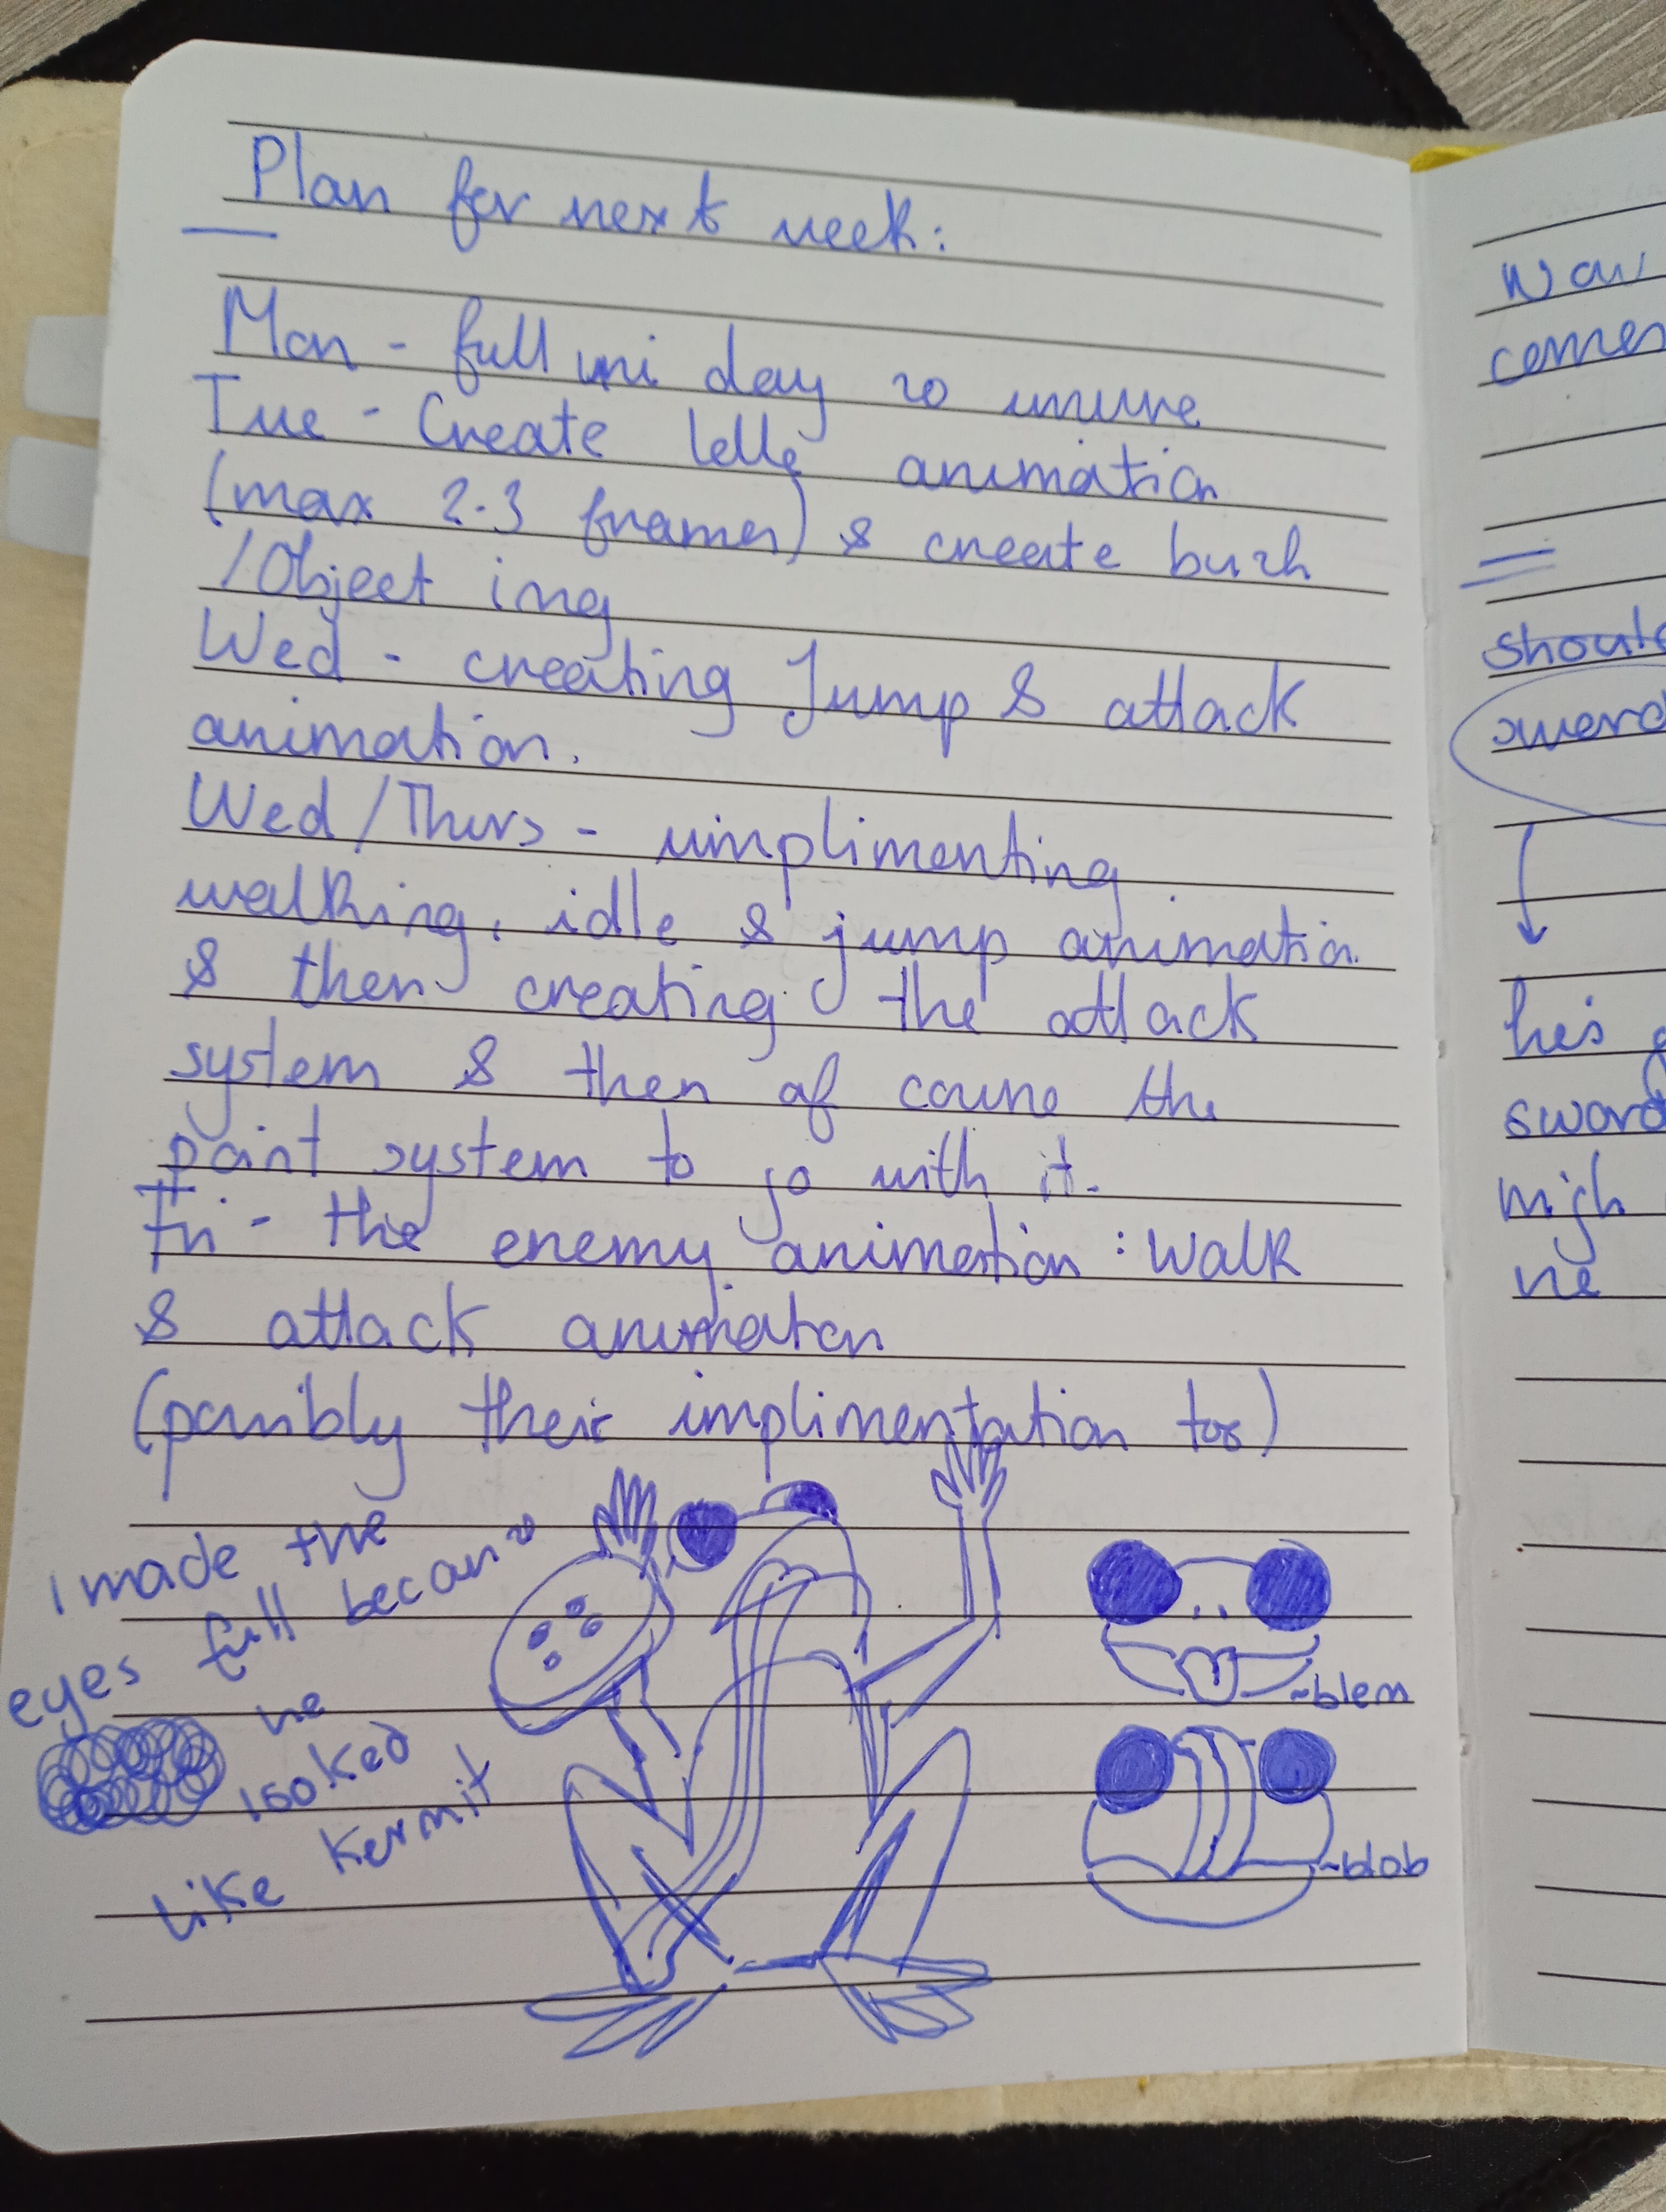 Plan for next week:
Mon - full uni day so unsure
Tue - Create Idle animation
(max 2-3 frames) & create bush
/Object ing
Wed - creating Jump & attack
animation.
Wed/Thurs - implimenting
walking, idle & jump animation
& then creating the attack
system & then of course the
point system to go with it.
Fri - the enemy animation: walk
& attack animation
(possibly their implimentation too)
I made the
eyes full because
he
looked
like Kermit
~blem
~blob
comes
should
sword
he's
sword
migh